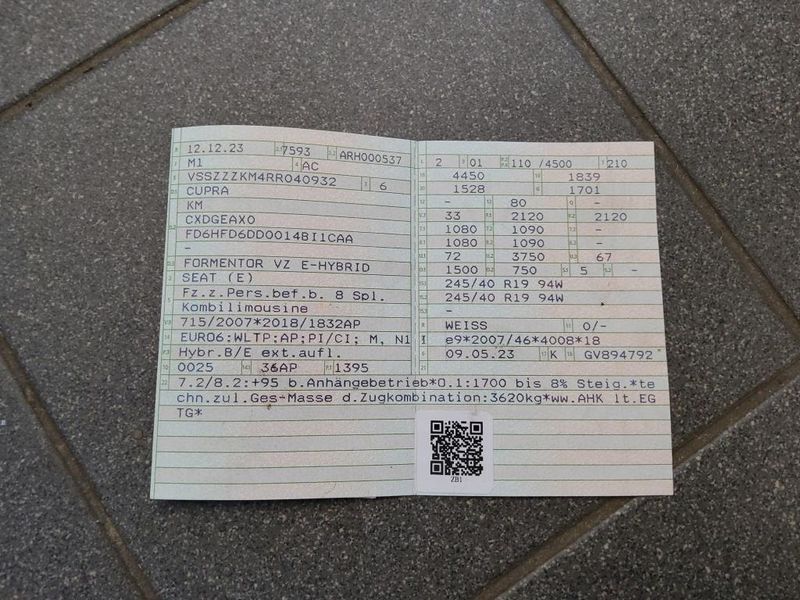 12.12.23 7593 ARH000537
M1 AC
VSSZZZKM4RR040932 6
CUPRA
KM
CXDGEAX0
FD6HFD6DD0014BI1CAA
-
FORMENTOR VZ E-HYBRID
SEAT (E)
Fz.z.Pers.bef.b. 8 Spl.
Kombilimousine
715/2007*2018/1832AP
EURO6:WLTP;AP;PI/CI; M, N1 I
Hybr.B/E ext.aufl.
0025 36AP 1395
2 01 110 /4500 210
4450 1839
1528 1701
- 80 -
33 2120 2120
1080 1090 -
1080 1090 -
72 3750 67
1500 750 5 -
245/40 R19 94W
245/40 R19 94W
-
WEISS 0/-
e9*2007/46*4008*18
09.05.23 K GV894792
7.2/8.2:+95 b.Anhängebetrieb*O.1:1700 bis 8% Steig.*te
chn.zul.Ges-Masse d.Zugkombination:3620kg*ww.AHK lt.EG
TG*
ZB1